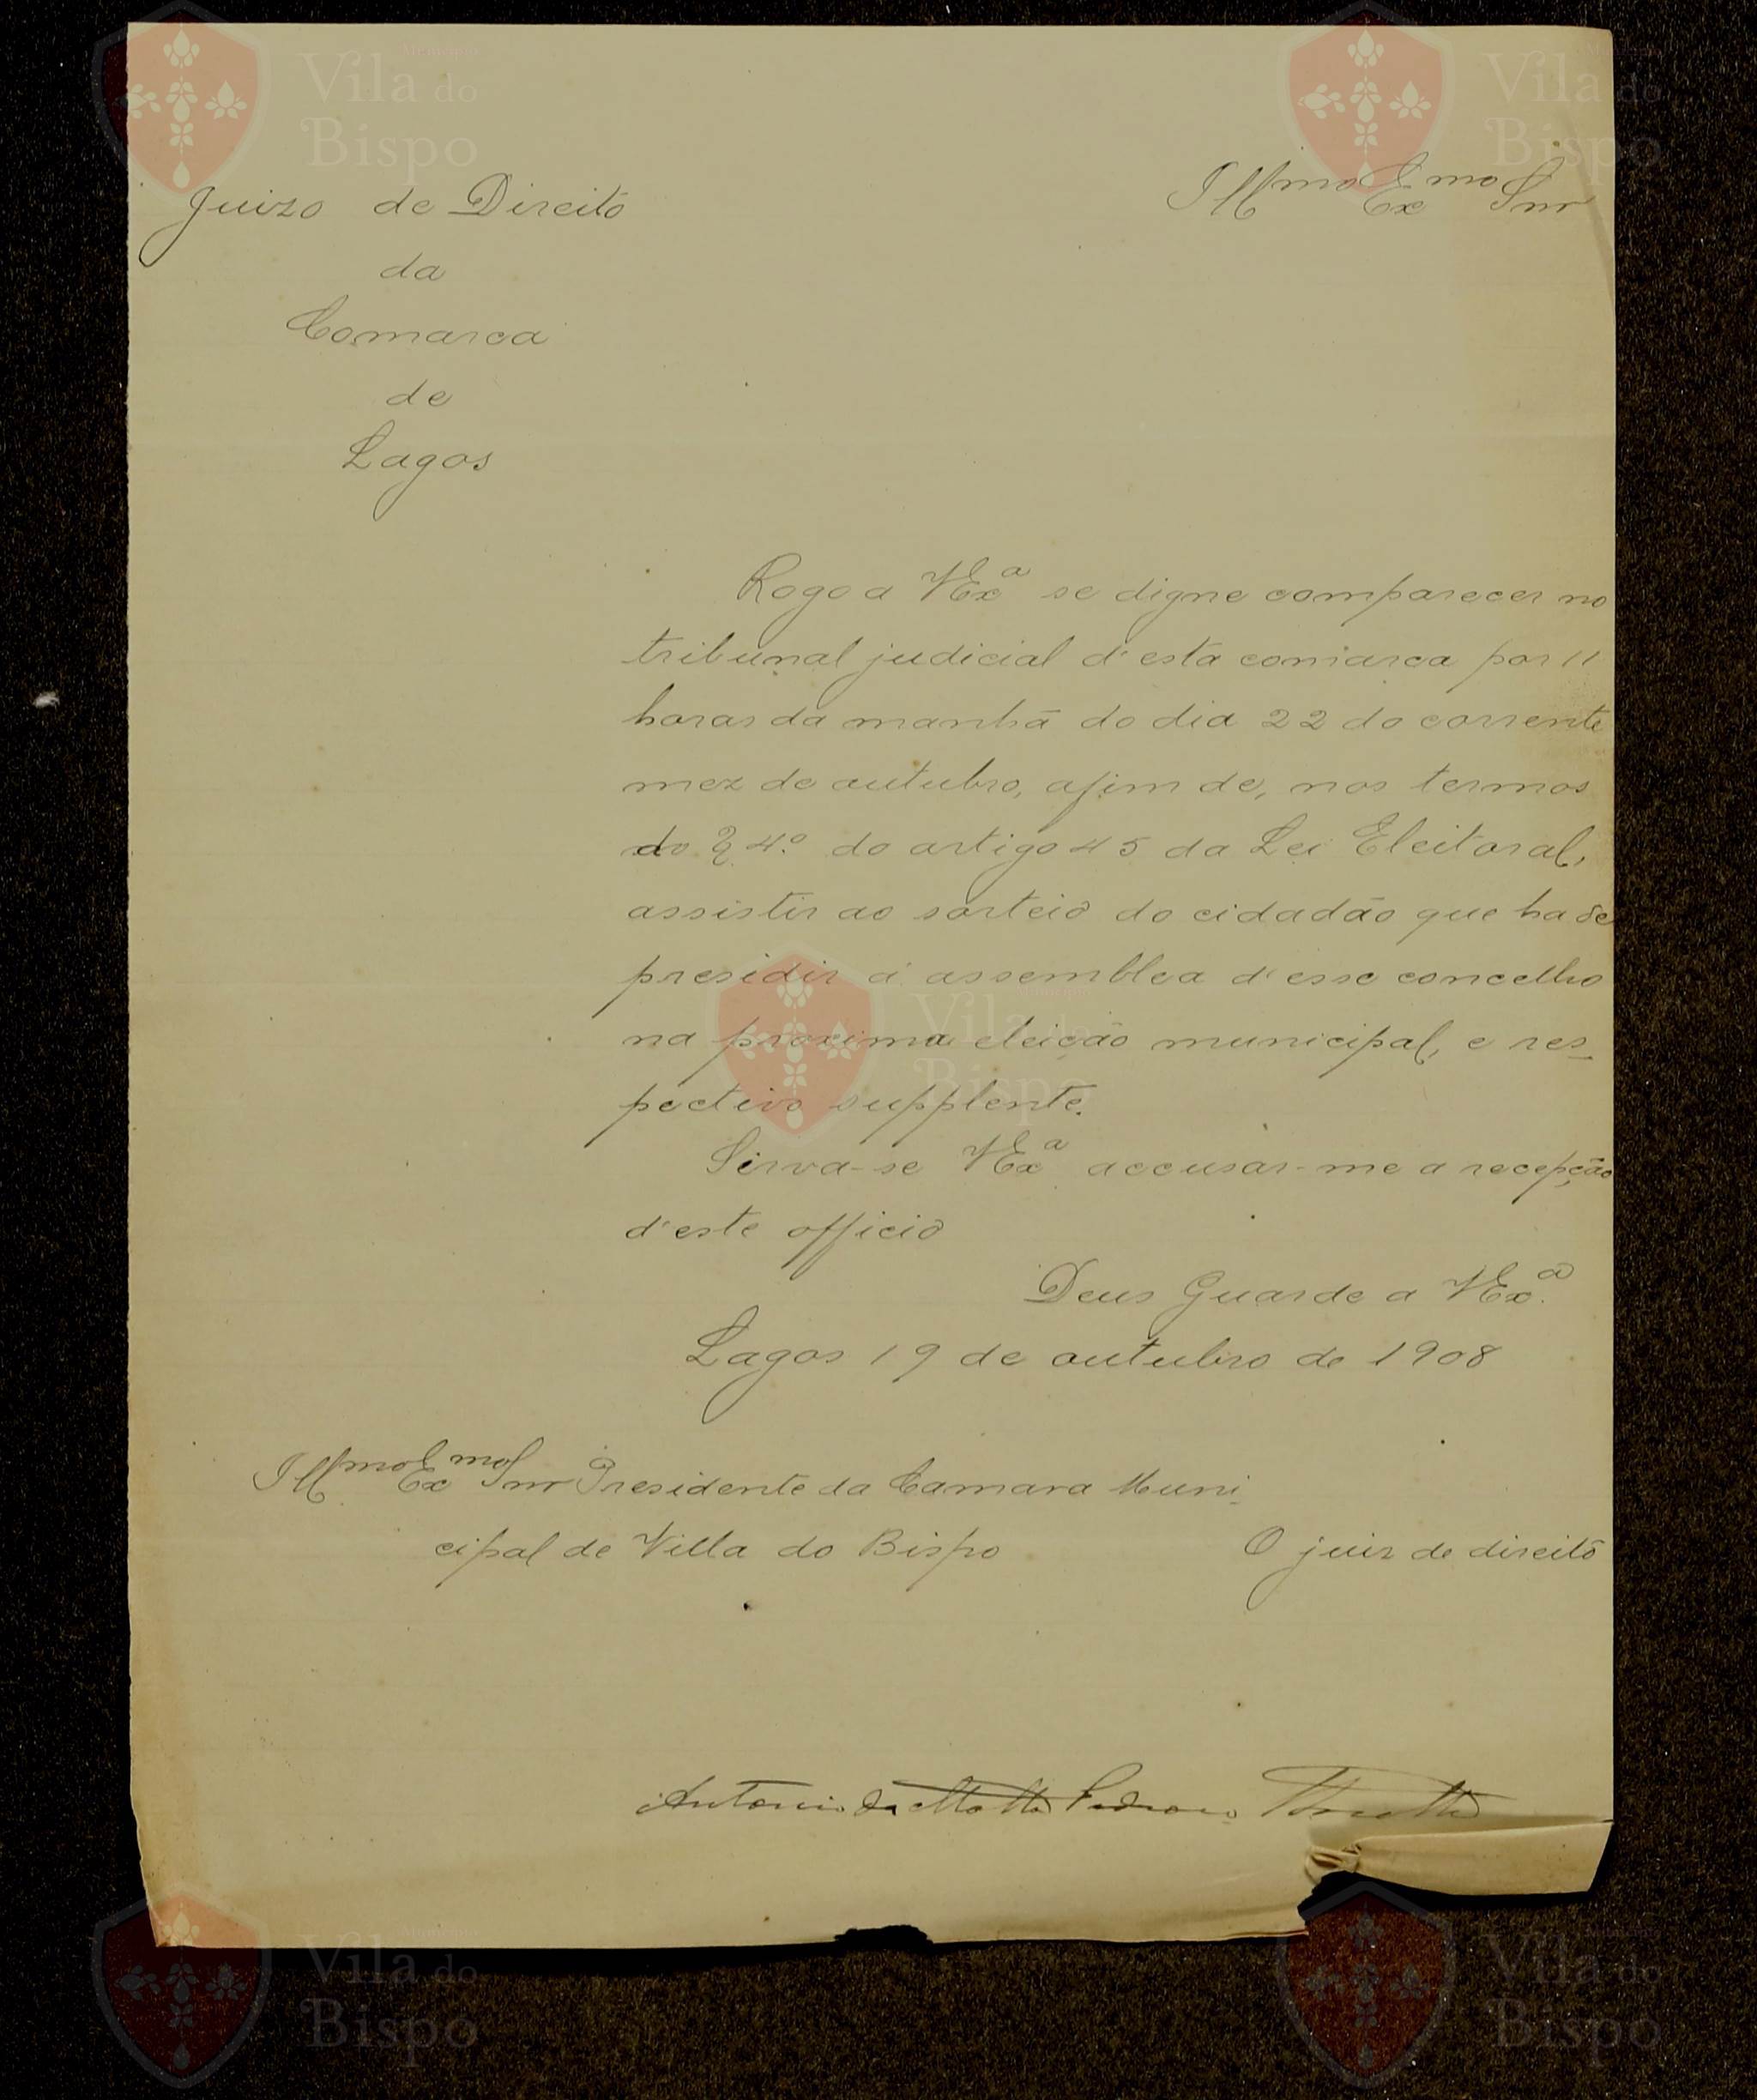 Município
Vila do
Bispo
Município
Vila do
Bispo
Juizo de Direito
da
Comarca
de
Lagos
Illmo Exmo Snr
Rogo a VExª se digne comparecer no
tribunal judicial d'esta comarca por 11
horas da manhã do dia 22 do corrente
mez de outubro, afim de, nos termos
do § 4.º do artigo 45 da Lei Eleitoral,
assistir ao sorteio do cidadão que ha de
presidir á assemblea d'esse concelho
na proxima eleição municipal, e res-
pectivo supplente.
Sirva-se VExª accusar-me a recepção
d'este officio
Deus Guarde a VExª.
Lagos 19 de outubro de 1908
Illmo Exmo Snr Presidente da Camara Muni-
cipal de Villa do Bispo
O juiz de direito
Antonio da Motta
Município
Vila do
Bispo
Município
Vila do
Bispo
Município
Vila do
Bispo